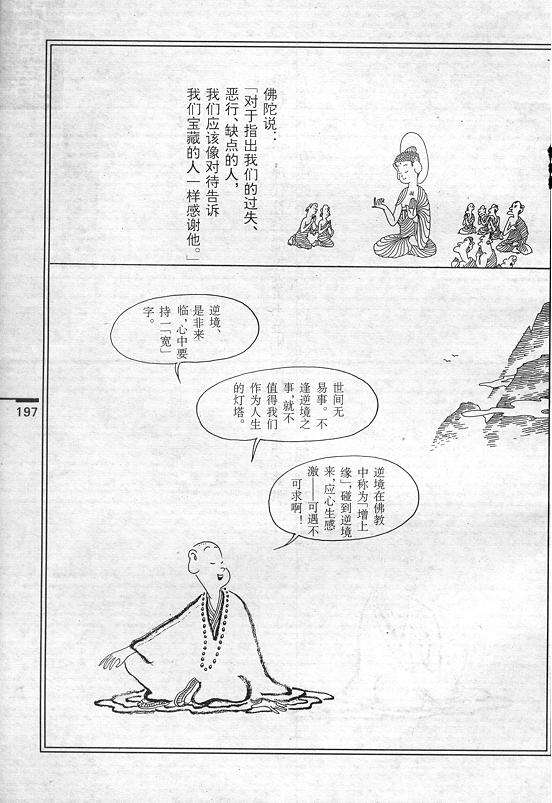 佛陀说：
「对于指出我们的过失、
恶行、缺点的人，
我们应该像对待告诉
我们宝藏的人一样感谢他。」
逆境、
是非来
临，心中要
持一「宽」
字。
世间无
易事。不
逢逆境之
事，就不
值得我们
作为人生
的灯塔。
逆境在佛教
中称为「增上
缘」，碰到逆境
来，应心生感
激——可遇不
可求啊！
197